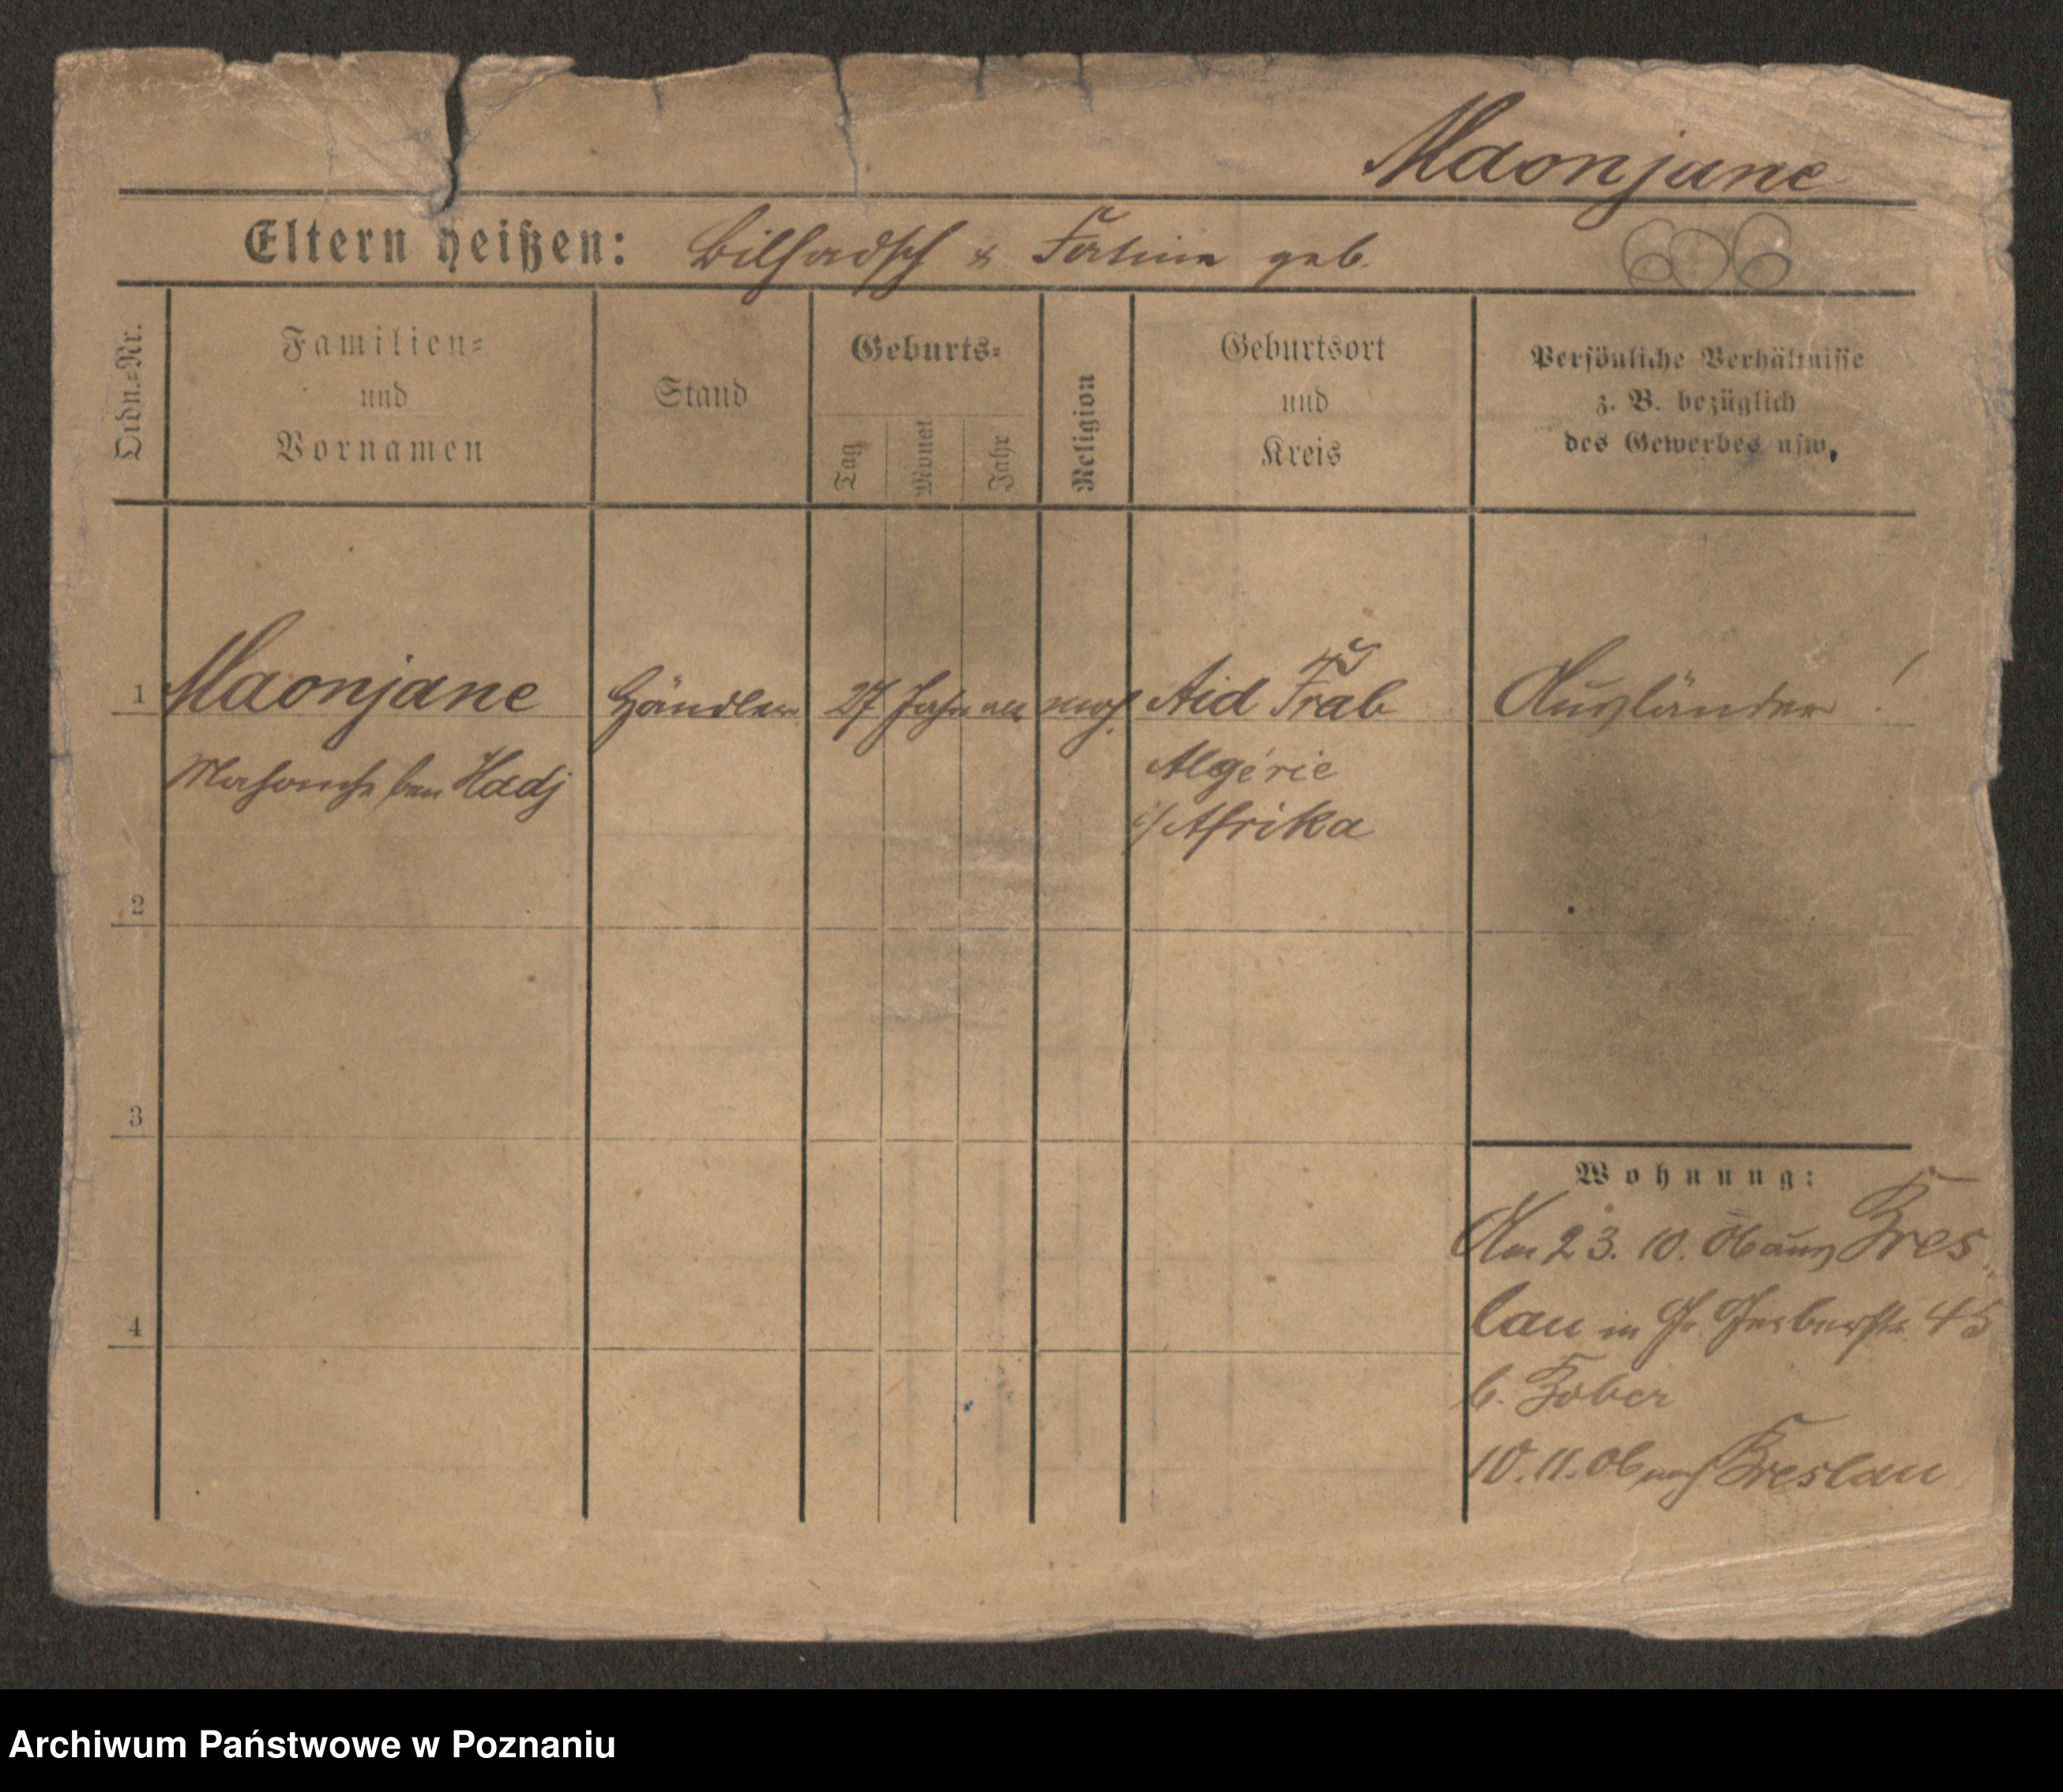 Maonjane
Eltern heißen: Bilhadsch & Fatima geb.
606
Ordn.-Nr.
Familien-
und
Vornamen
Stand
Geburts-
Tag
Monat
Jahr
Religion
Geburtsort
und
Kreis
Persönliche Verhältnisse
z. B. bezüglich
des Gewerbes usw.
1 Maonjane Händler 27 Jahre alt Aid Frab Ausländer!
ben Hadj Algérie
i/Afrika
2
3
4
Wohnung:
Am 23. 10. 06 aus Bres
lau in Gr. Gerberstr. 45
b. Bober
10. 11. 06 nach Breslau
Archiwum Państwowe w Poznaniu